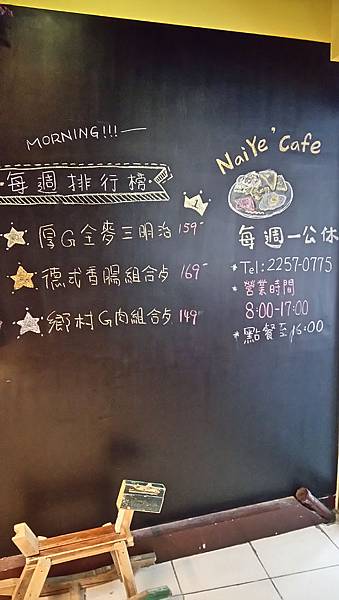 MORNING!!!
每週排行榜
厚G全麥三明治 159-
德式香腸組合卢 169-
鄉村G肉組合卢 149-
NaiYe' Cafe
每週一公休
*Tel: 2257-0775
*營業時間
8:00-17:00
*點餐至16:00